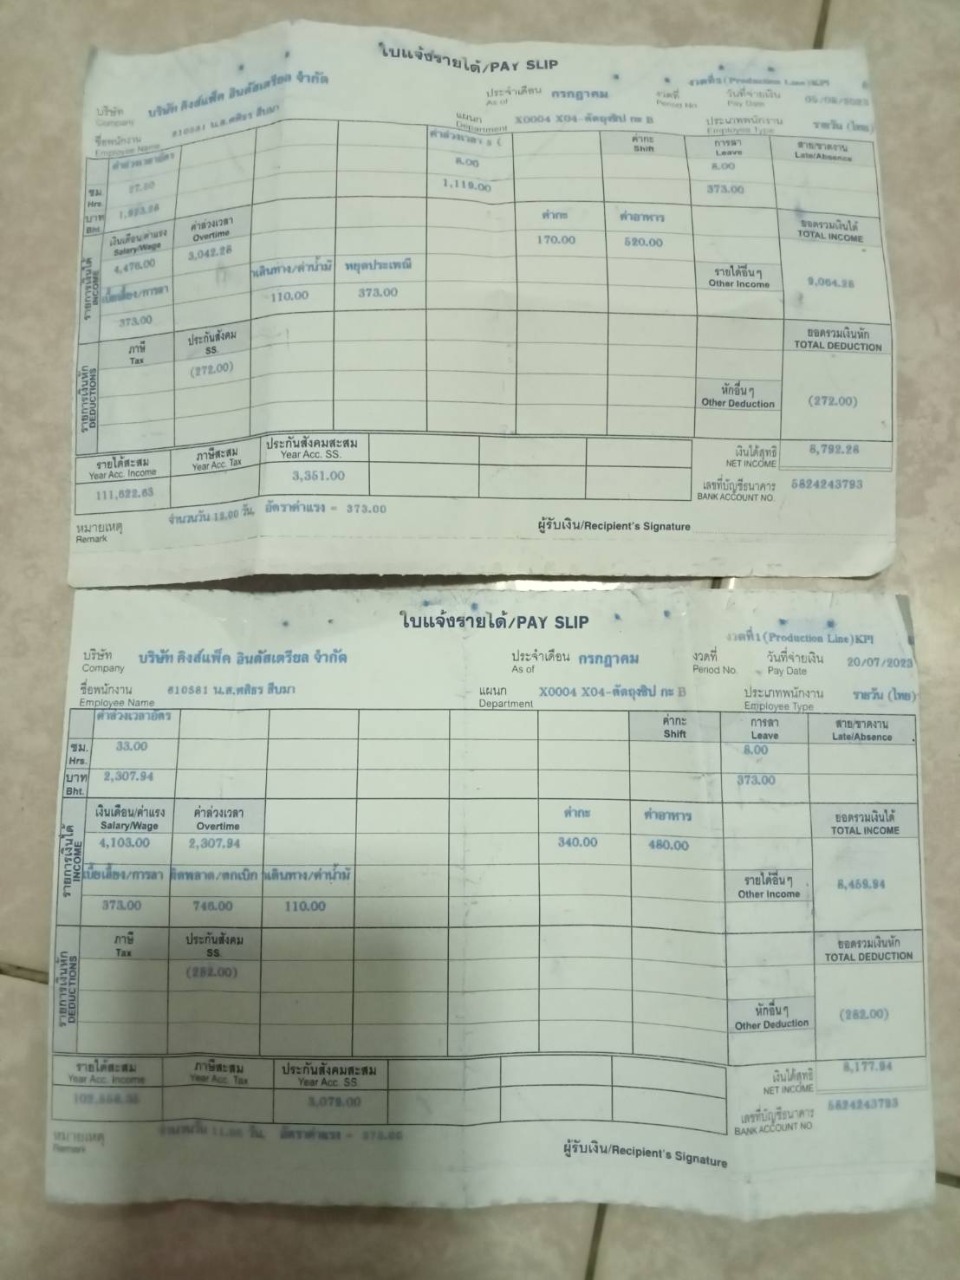 ใบแจ้งรายได้/PAY SLIP
บริษัท บริษัท คิงส์แพ็ค อินดัสเตรียล จำกัด
Company
ประจำเดือน กรกฎาคม
As of
งวดที่
Period No.
(Production Line)KPI
วันที่จ่ายเงิน
Pay Date
ชื่อพนักงาน
Employee Name
แผนก X0004 X04-ตัดถุงซิป กะ B
Department
ประเภทพนักงาน รายวัน (ไทย)
Employee Type
ค่าล่วงเวลาอัตร
ค่ากะ
Shift
การลา
Leave
สาย/ขาดงาน
Late/Absence
ชม.
Hrs.
8.00
8.00
บาท
Bht.
373.00
รายการเงินได้
INCOME
เงินเดือน/ค่าแรง
Salary/Wage
ค่าล่วงเวลา
Overtime
ค่ากะ ค่าอาหาร
ยอดรวมเงินได้
TOTAL INCOME
4,476.00 170.00 520.00
เบี้ยเลี้ยง/การลา เดินทาง/ค่าน้ำมั หยุดประเพณี
รายได้อื่นๆ
Other Income
373.00 110.00 373.00
รายการเงินหัก
DEDUCTIONS
ภาษี
Tax
ประกันสังคม
SS.
ยอดรวมเงินหัก
TOTAL DEDUCTION
(272.00)
(272.00)
หักอื่นๆ
Other Deduction
รายได้สะสม
Year Acc. Income
ภาษีสะสม
Year Acc. Tax
ประกันสังคมสะสม
Year Acc. SS.
เงินได้สุทธิ
NET INCOME
3,351.00
เลขที่บัญชีธนาคาร 5824243793
BANK ACCOUNT NO.
หมายเหตุ
Remark
อัตราค่าแรง = 373.00
ผู้รับเงิน/Recipient's Signature
ใบแจ้งรายได้/PAY SLIP
บริษัท บริษัท คิงส์แพ็ค อินดัสเตรียล จำกัด
Company
ประจำเดือน กรกฎาคม
As of
งวดที่
Period No.
งวดที่1(Production Line)KPI
วันที่จ่ายเงิน 20/07/2023
Pay Date
ชื่อพนักงาน
Employee Name
แผนก X0004 X04-ตัดถุงซิป กะ B
Department
ประเภทพนักงาน รายวัน (ไทย)
Employee Type
ค่าล่วงเวลาอัตร
ค่ากะ
Shift
การลา
Leave
สาย/ขาดงาน
Late/Absence
ชม. 33.00 8.00
Hrs.
บาท 2,307.94 373.00
Bht.
รายการเงินได้
INCOME
เงินเดือน/ค่าแรง
Salary/Wage
ค่าล่วงเวลา
Overtime
ค่ากะ ค่าอาหาร
ยอดรวมเงินได้
TOTAL INCOME
4,103.00 2,307.94 340.00 480.00
เบี้ยเลี้ยง/การลา ผิดพลาด/ตกเบิก เดินทาง/ค่าน้ำมั
รายได้อื่นๆ
Other Income
8,459.94
373.00 746.00 110.00
รายการเงินหัก
DEDUCTIONS
ภาษี
Tax
ประกันสังคม
SS.
ยอดรวมเงินหัก
TOTAL DEDUCTION
(282.00)
หักอื่นๆ
Other Deduction
(282.00)
รายได้สะสม
Year Acc. Income
ภาษีสะสม
Year Acc. Tax
ประกันสังคมสะสม
Year Acc. SS.
เงินได้สุทธิ 8,177.94
NET INCOME
3,079.00
เลขที่บัญชีธนาคาร 5824243793
BANK ACCOUNT NO.
หมายเหตุ
Remark
ผู้รับเงิน/Recipient's Signature